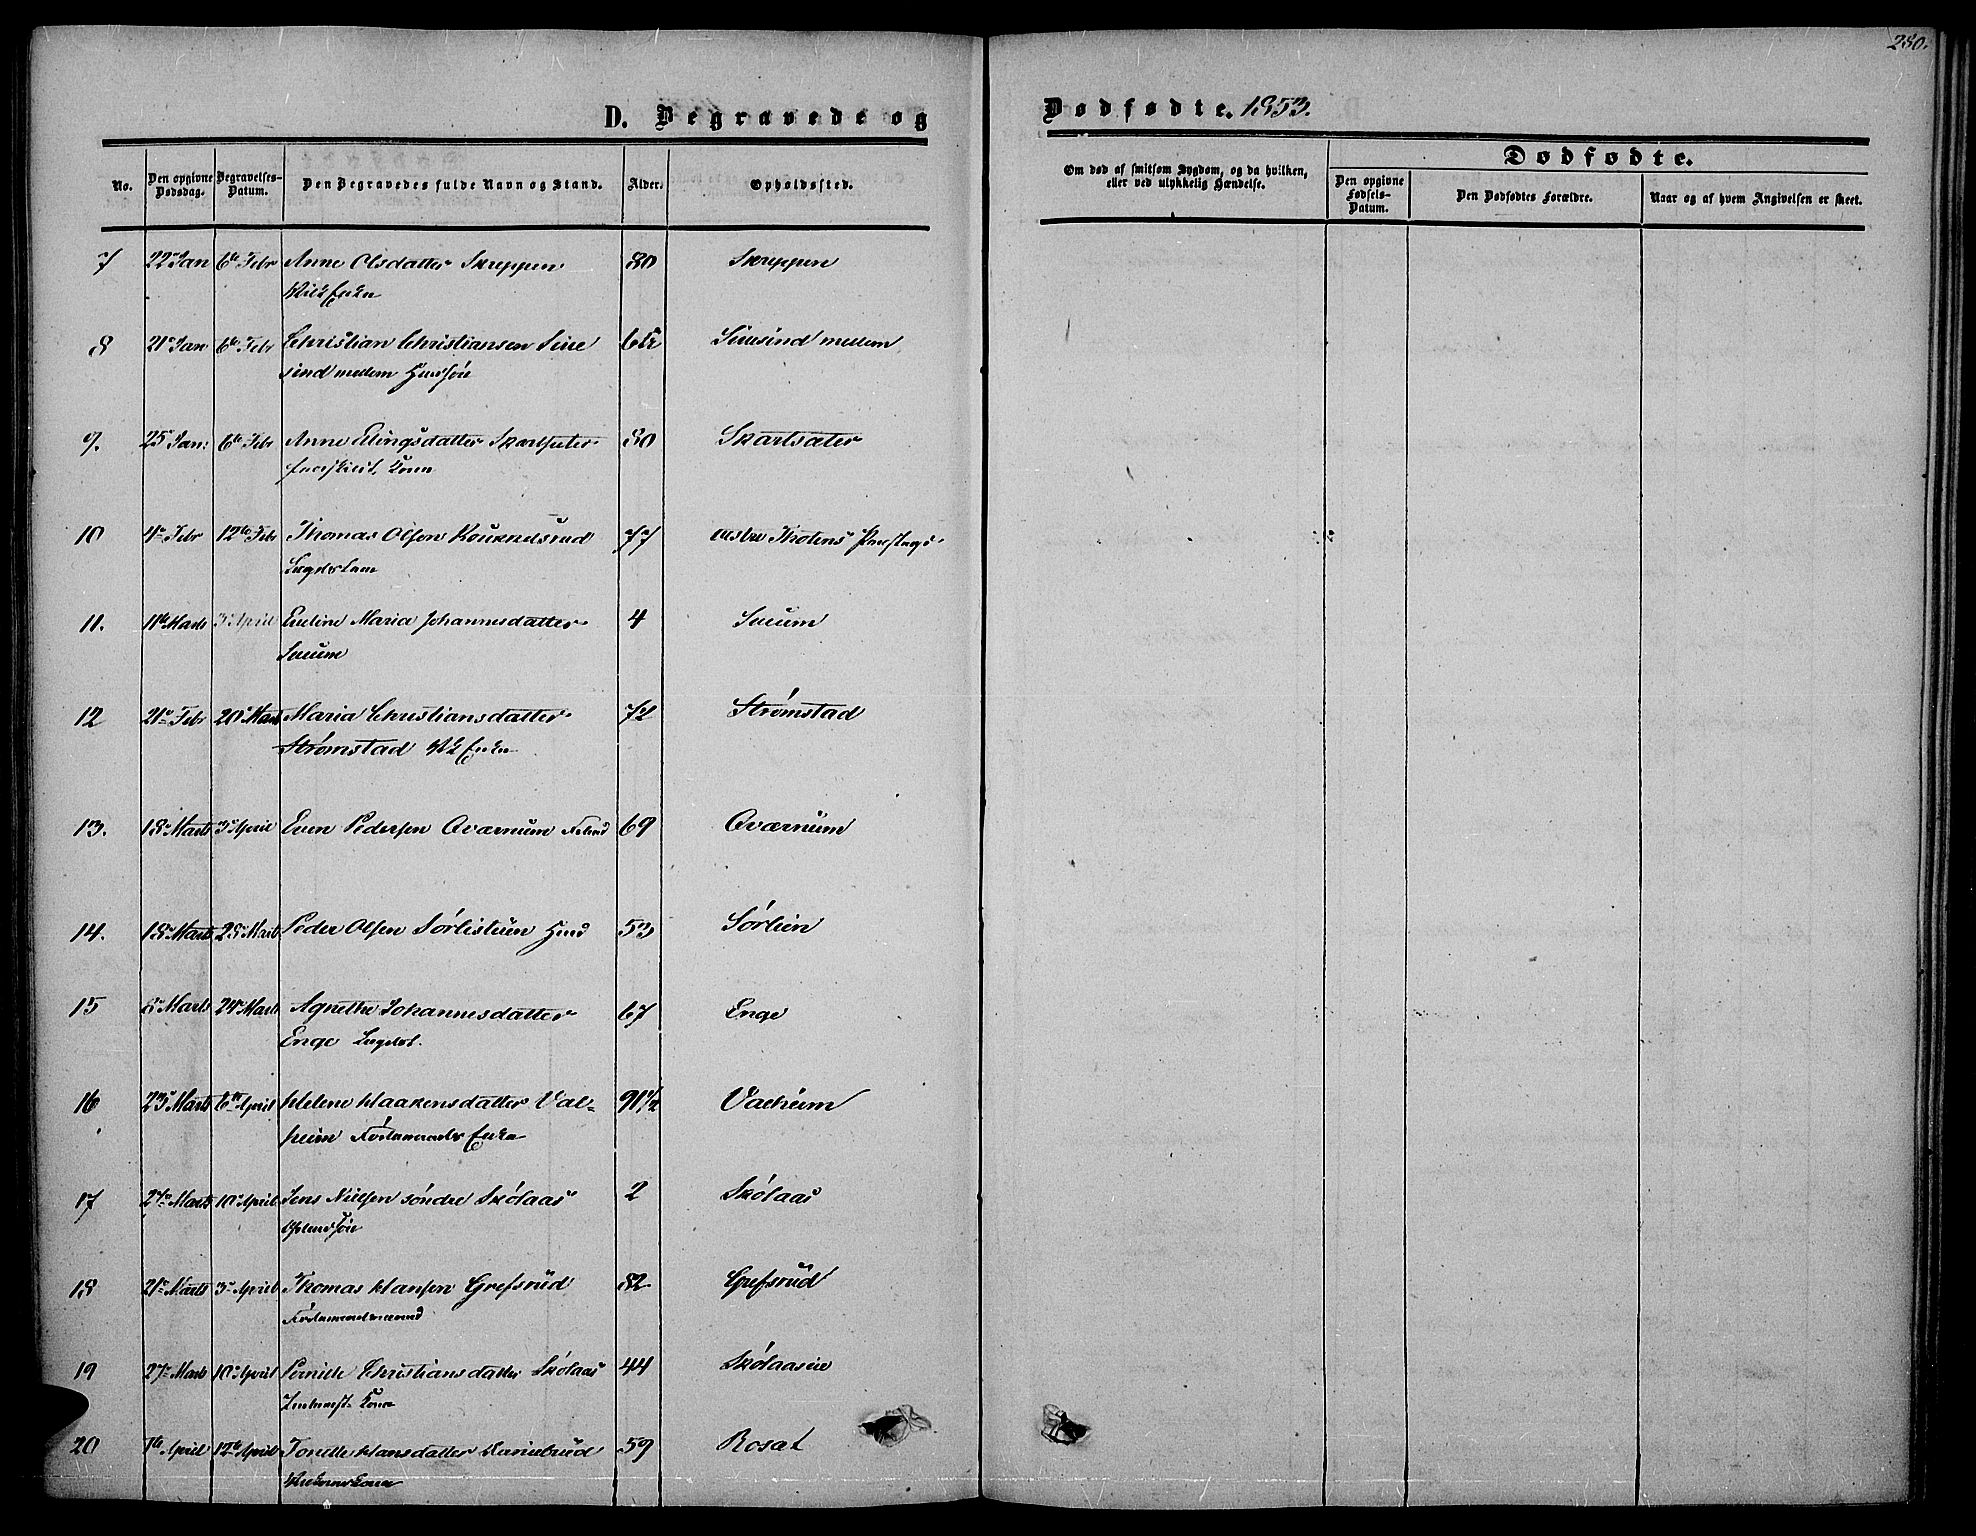 280.
D. Begravede og Dødfødte. 1853.
No. Den opgivne Dødsdag. Begravelses-Datum. Den Begravedes fulde Navn og Stand. Alder. Opholdssted. Om død af smitsom Sygdom, og da hvilken, eller ved ulykkelig Hændelse. Dødfødte. Den opgivne Fødsels-Datum. Den Dødfødtes Forældre. Naar og af hvem Angivelsen er skeet.
7 22 Jan 6te Febr Anne Olsdatter Skreppen 80 Skreppen
Enke
8 21 Jan 6te Febr Christian Christiansen 65 mellem
mellem
9. 25 Jan: 6te Febr Anne Elingsdatter Skartsæter 80 Skartsæter
Kone
10 4 Febr 12te Febr Thomas Olsen 77
11. 11te Marts 3 April Eveline Maria Johannesdatter 4
12 21 Febr 20 Marts Maria Christiansdatter 72 Strømstad
Strømstad Enke
13. 18 Marts 3 April Even Pedersen Qværnum 69 Qværnum
14. 18 Marts 28 Marts Peder Olsen 53 Sørlien
15 8 Marts 24 Marts Agnethe Johannesdatter 67 Enge
Enge
16 23 Marts 6te April Helene Haakensdatter Val- 91½ Valheim
heim Føderaadsenke
17 27 Marts 10 April Jens Nielsen søndre Skólaas 2 Skólaas
18 21 Marts 3 April Thomas Hansen Grefsrud 82 Grefsrud
Føderaadsmand
19 27 Marts 10 April Pernille Christiansdatter Skólaas 44 Skólaaseie
Kone
20 1te April 12te April Tonille Hansdatter 59 Rosat